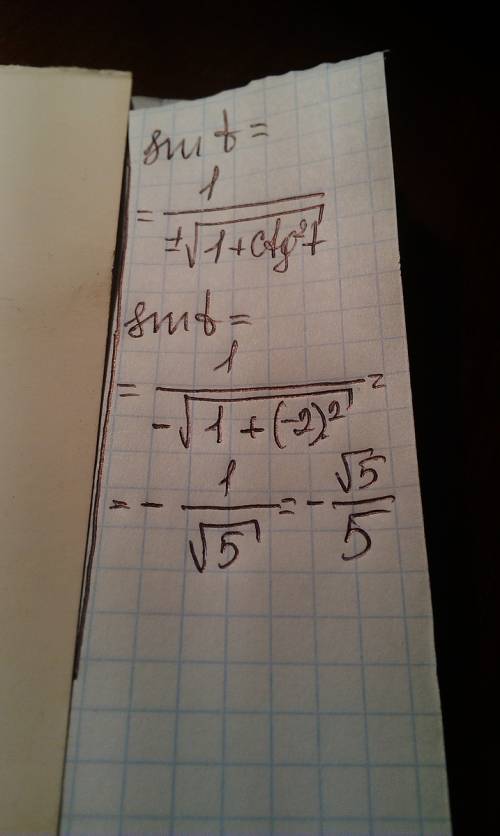 sin t =
= 1/(±√(1+ctg²t))
sin t =
= 1/(-√(1+(-2)²)) =
= - 1/√5 = - √5/5